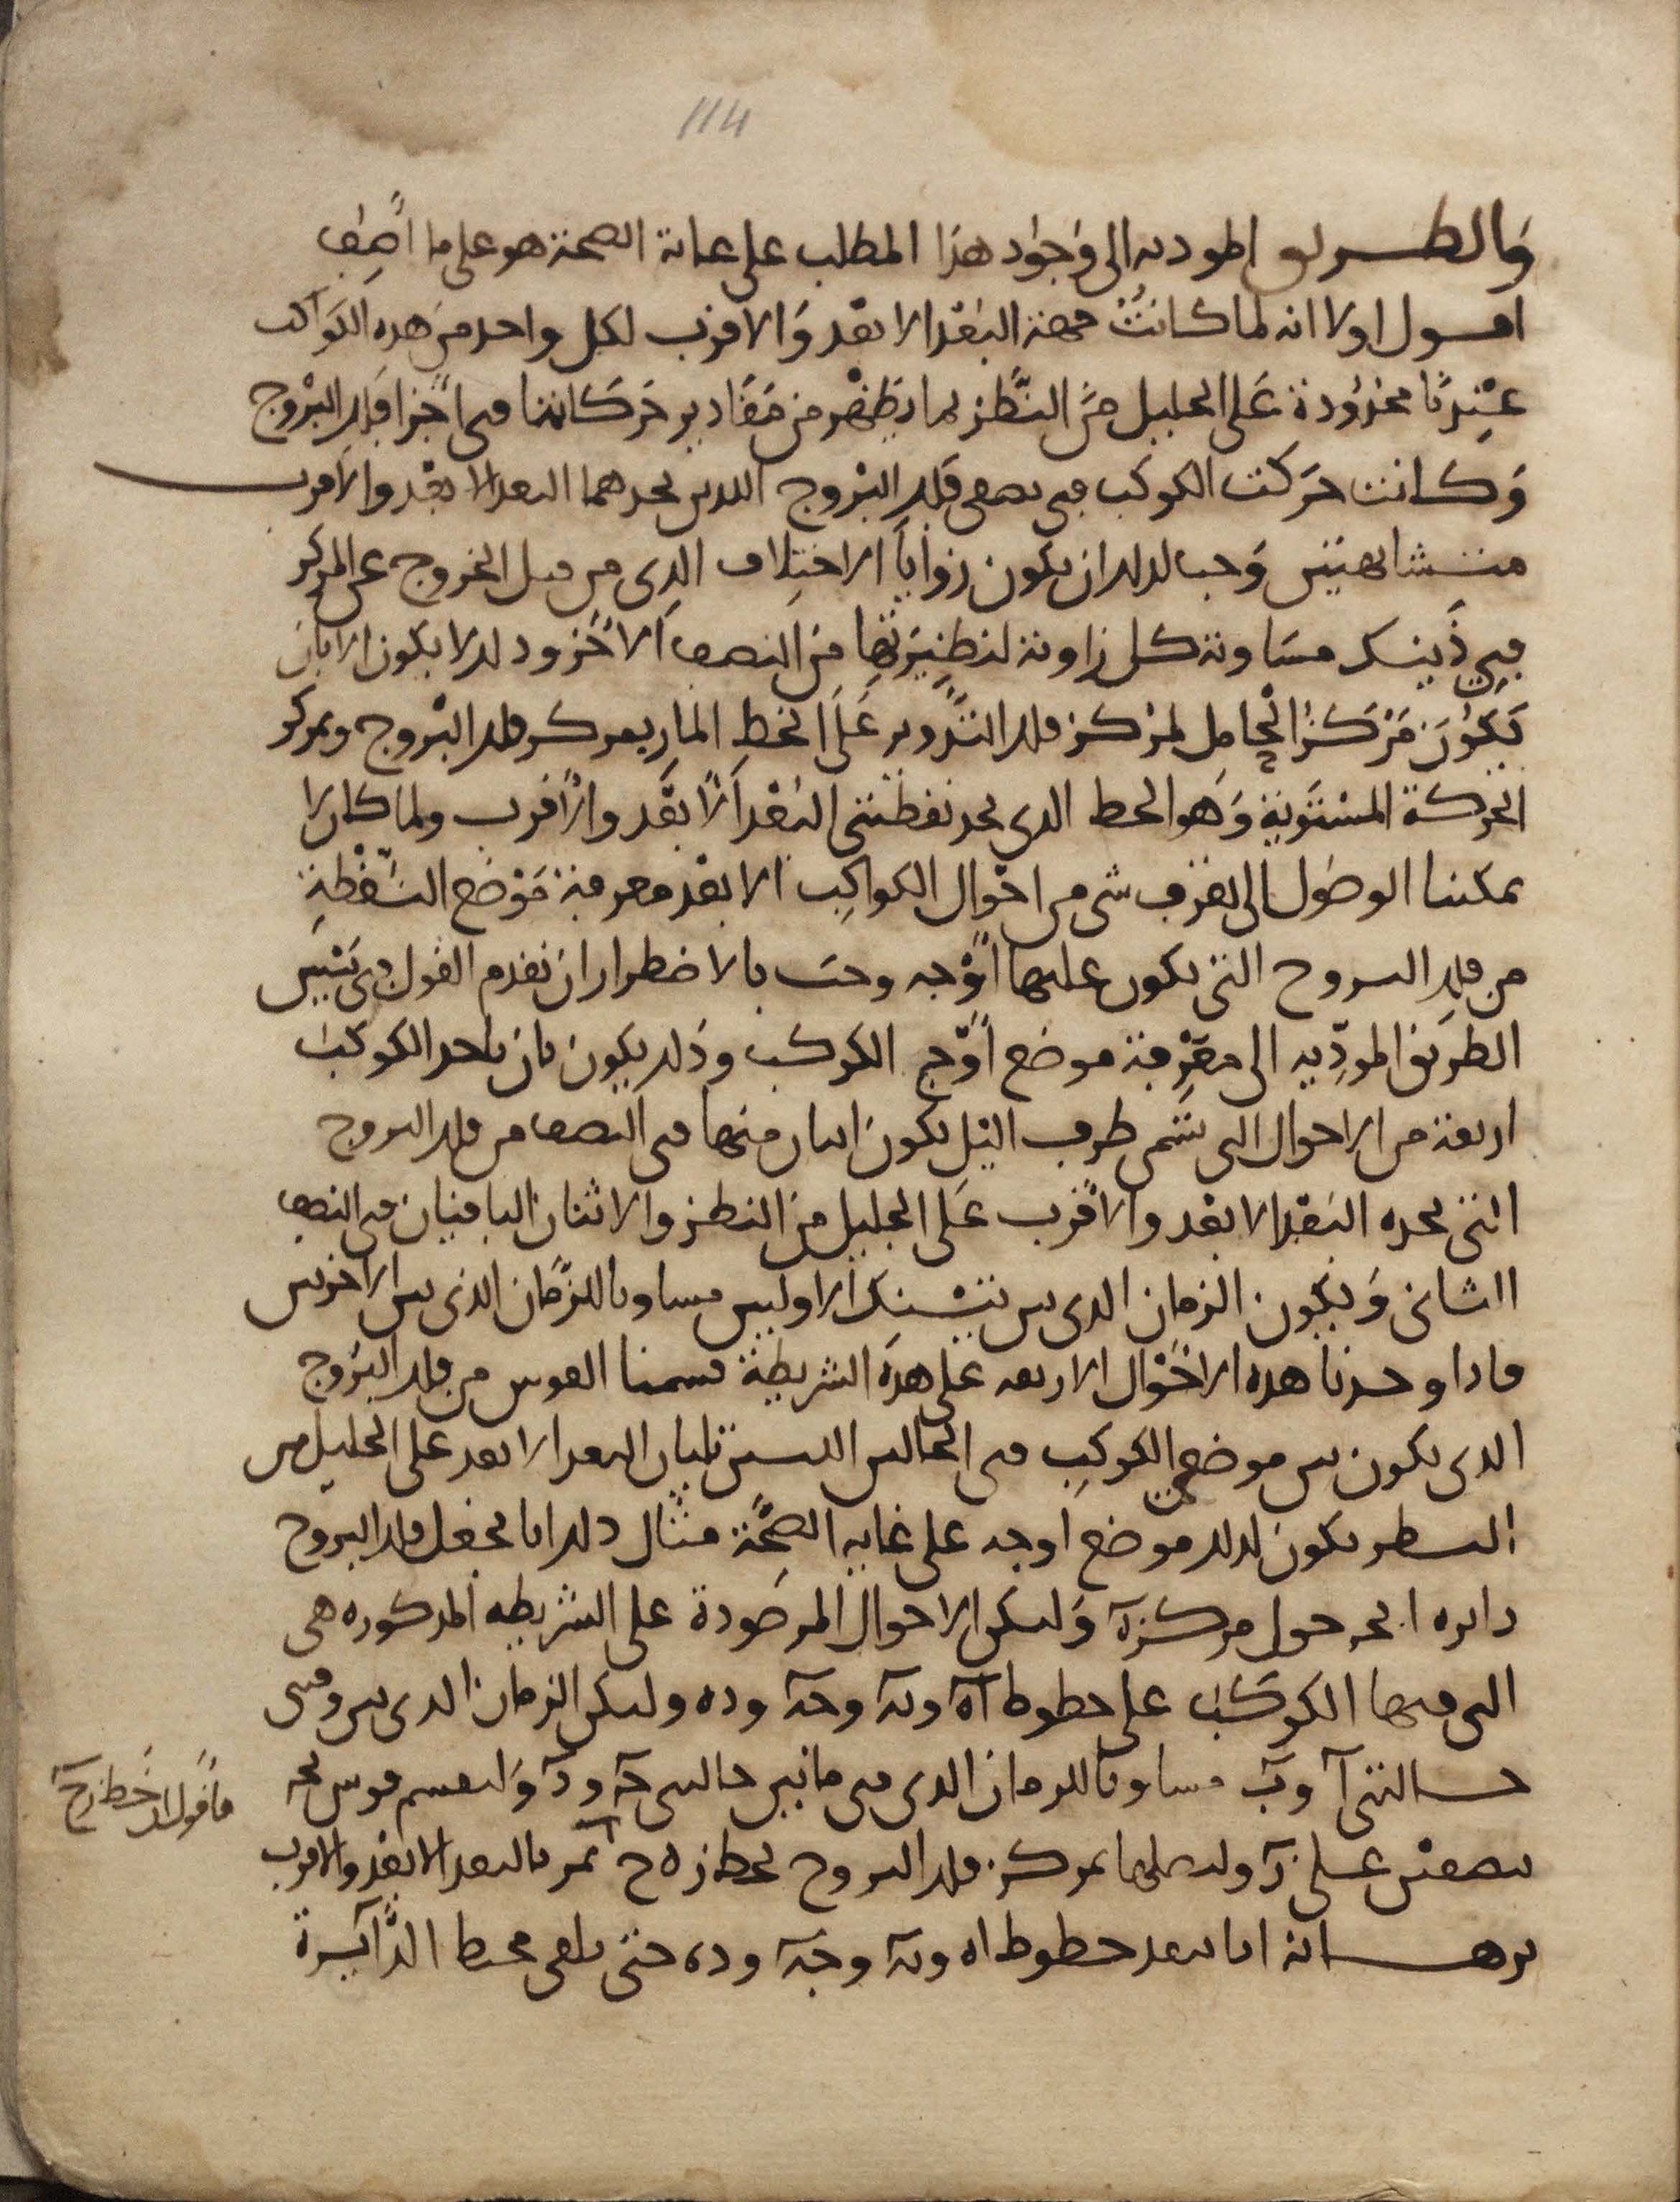 114
والطريق المودية الى وجود هذا المطلب على غاية الصحة هو على ما اصف
اقول اولا انه لما كانت جهة البعد الابعد والاقرب لكل واحد من هذه الكواكب
عندنا محدودة على الجليل من النظر بما يظهر من مقادير حركاتنا في اجزا فلك البروج
وكانت حركت الكوكب في نصفي فلك البروج اللدين يحدهما البعد الابعد والاقرب
متشابهتين وجب لدلك ان يكون زوايا الاختلاف الدي من قبل الخروج عن المركز
في ذينك مساوية كل زاوية لنظيرتها من النصف الاخر ودلك لا يكون الا بان
يكون مركز الحامل لمركز فلك التدوير على الخط المار بمركز فلك البروج وبمركز
الحركة المستوية وهو الخط الدي يحد نقطتي البعد الابعد والاقرب ولما كان لا
يمكننا الوصول الى تعرف شي من احوال الكواكب الا بعد معرفة موضع النقطة
من فلك البروج التي يكون عليها اوجه وجب بالاضطرار ان نقدم القول في تبيين
الطريق المودية الى معرفة موضع اوج الكوكب وذلك يكون بان ناخد للكوكب
اربعة من الاحوال التي تسمى طرف الليل يكون اثنان منها في النصف من فلك البروج
التي يحده البعد الابعد والاقرب على الجليل من النظر والاثنان الباقيان في النصف
الثاني ويكون الزمان الدي بين تينك الاوليين مساويا للزمان الذي بين الاخريين
فادا وجدنا هده الاحوال الاربعه على هده الشريطة قسمنا القوس من فلك البروج
الدي يكون بين موضعي الكوكب في الحالين اللتين تليان البعد الابعد على الجليل من
النظر يكون لدلك موضع اوجه على غاية الصحة مثال دلك انا نجعل فلك البروج
دايره ابجد حول مركز ه وليكن الاحوال المرصودة على الشريطه المدكوره هي
التي فيها الكوكب على خطوط اه وبه وجه وده وليكن الزمان الدي بين وقتي
حالتي ا وب مساويا للزمان الدي في ما بين حالتي ج ود ولنقسم قوس بج
بنصفين على ز ولنصلها بمركز فلك البروج بخط زه ح تمر بالبعد الابعد والاقرب
فاقول ان خط زح
برهانه انا ننفد خطوط اه وبه وجه وده حتى تلقى محيط الدايرة